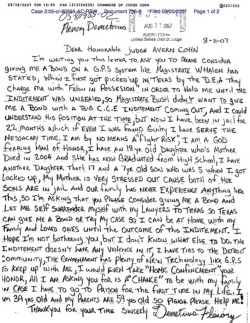 03/28/2007 TUE 10:50 FAX CHAMBERS OF JUDGE COHN
Case 2:05-cr-80955 Document Filed 09/05/2007 Page 1 of 3
Flenory Demetrius
AUG 31 2007
AVERN COHN
United States District Judge
8-21-07
Dear Honorable Judge AVERN COHN
I'm writing you this letter to ASK you to Please Consider
giving ME A BOND on A G.P.S System like MAGistrate WHALEN HAS
STATED, When I First got Picked up in TEXAS by the D.E.A They
Charge ME with "Felon in Possession" in order to Hold ME until the
INDITEMENT WAS UNSEALED, So MAGistrate Bush didn't want to give
ME A BOND with A BIG C.C.E INDITEMENT Coming out, And I could
understand His Position AT the time, But Now I HAVE been in JAIL for
22 Months which if EVER I WAS Found Guilty I HAVE SERVE THE
NESSACARY TIME, I AM by NO MEANS A "Flight RISK", I AM A GOD
FEARING MAN OF HONOR, I HAVE AN 18 yr old DAUGHTER who's Mother
Died in 2004 And she HAS NOW GRADUATED From High School, I HAVE
ANOTHER DAUGHTER THAT'S 17 And A 7 yr old SON who WAS 5 when I got
Locked up, My Mother is VERY STRESSED OUT CAUSE both of HER
SONS ARE IN JAIL And Our FAMILY HAS NEVER EXPERIENCE ANYthing like
this, SO I'm ASKing that you PLEASE Consider giving ME A BOND And
LET ME SELF SURRENDER MYSELF with My LAWYERS TO TEXAS SO TEXAS
CAN give ME A BOND or TRY My CASE SO I CAN be AT Home with my
FAMILY And Loved ones until the OUTCOME of this INDITEMENT. I
Hope I'm NOT bothering you, but I don't KNOW what ELSE TO DO. THE
INDITEMENT doesn't HAVE ANY Violence in it, I HAVE TIES to the DETROIT
Community, The Government HAS PLENTY of New Technology like G.P.S
TO KEEP up with ME, I would EVEN TAKE "HOME CONFINEMENT" YOUR
HONOR, All I AM ASKing you for is A "CHANCE" to be with my FAMILY
in CASE I HAVE TO go TO PRISON for the FIRST TIME in My LIFE. I'm
AM 37 yrs old And my PARENTS ARE 59 yrs old SO PLEASE PLEASE HELP ME!
THANKyou For your TIME SINCERELY Demetrius Flenory